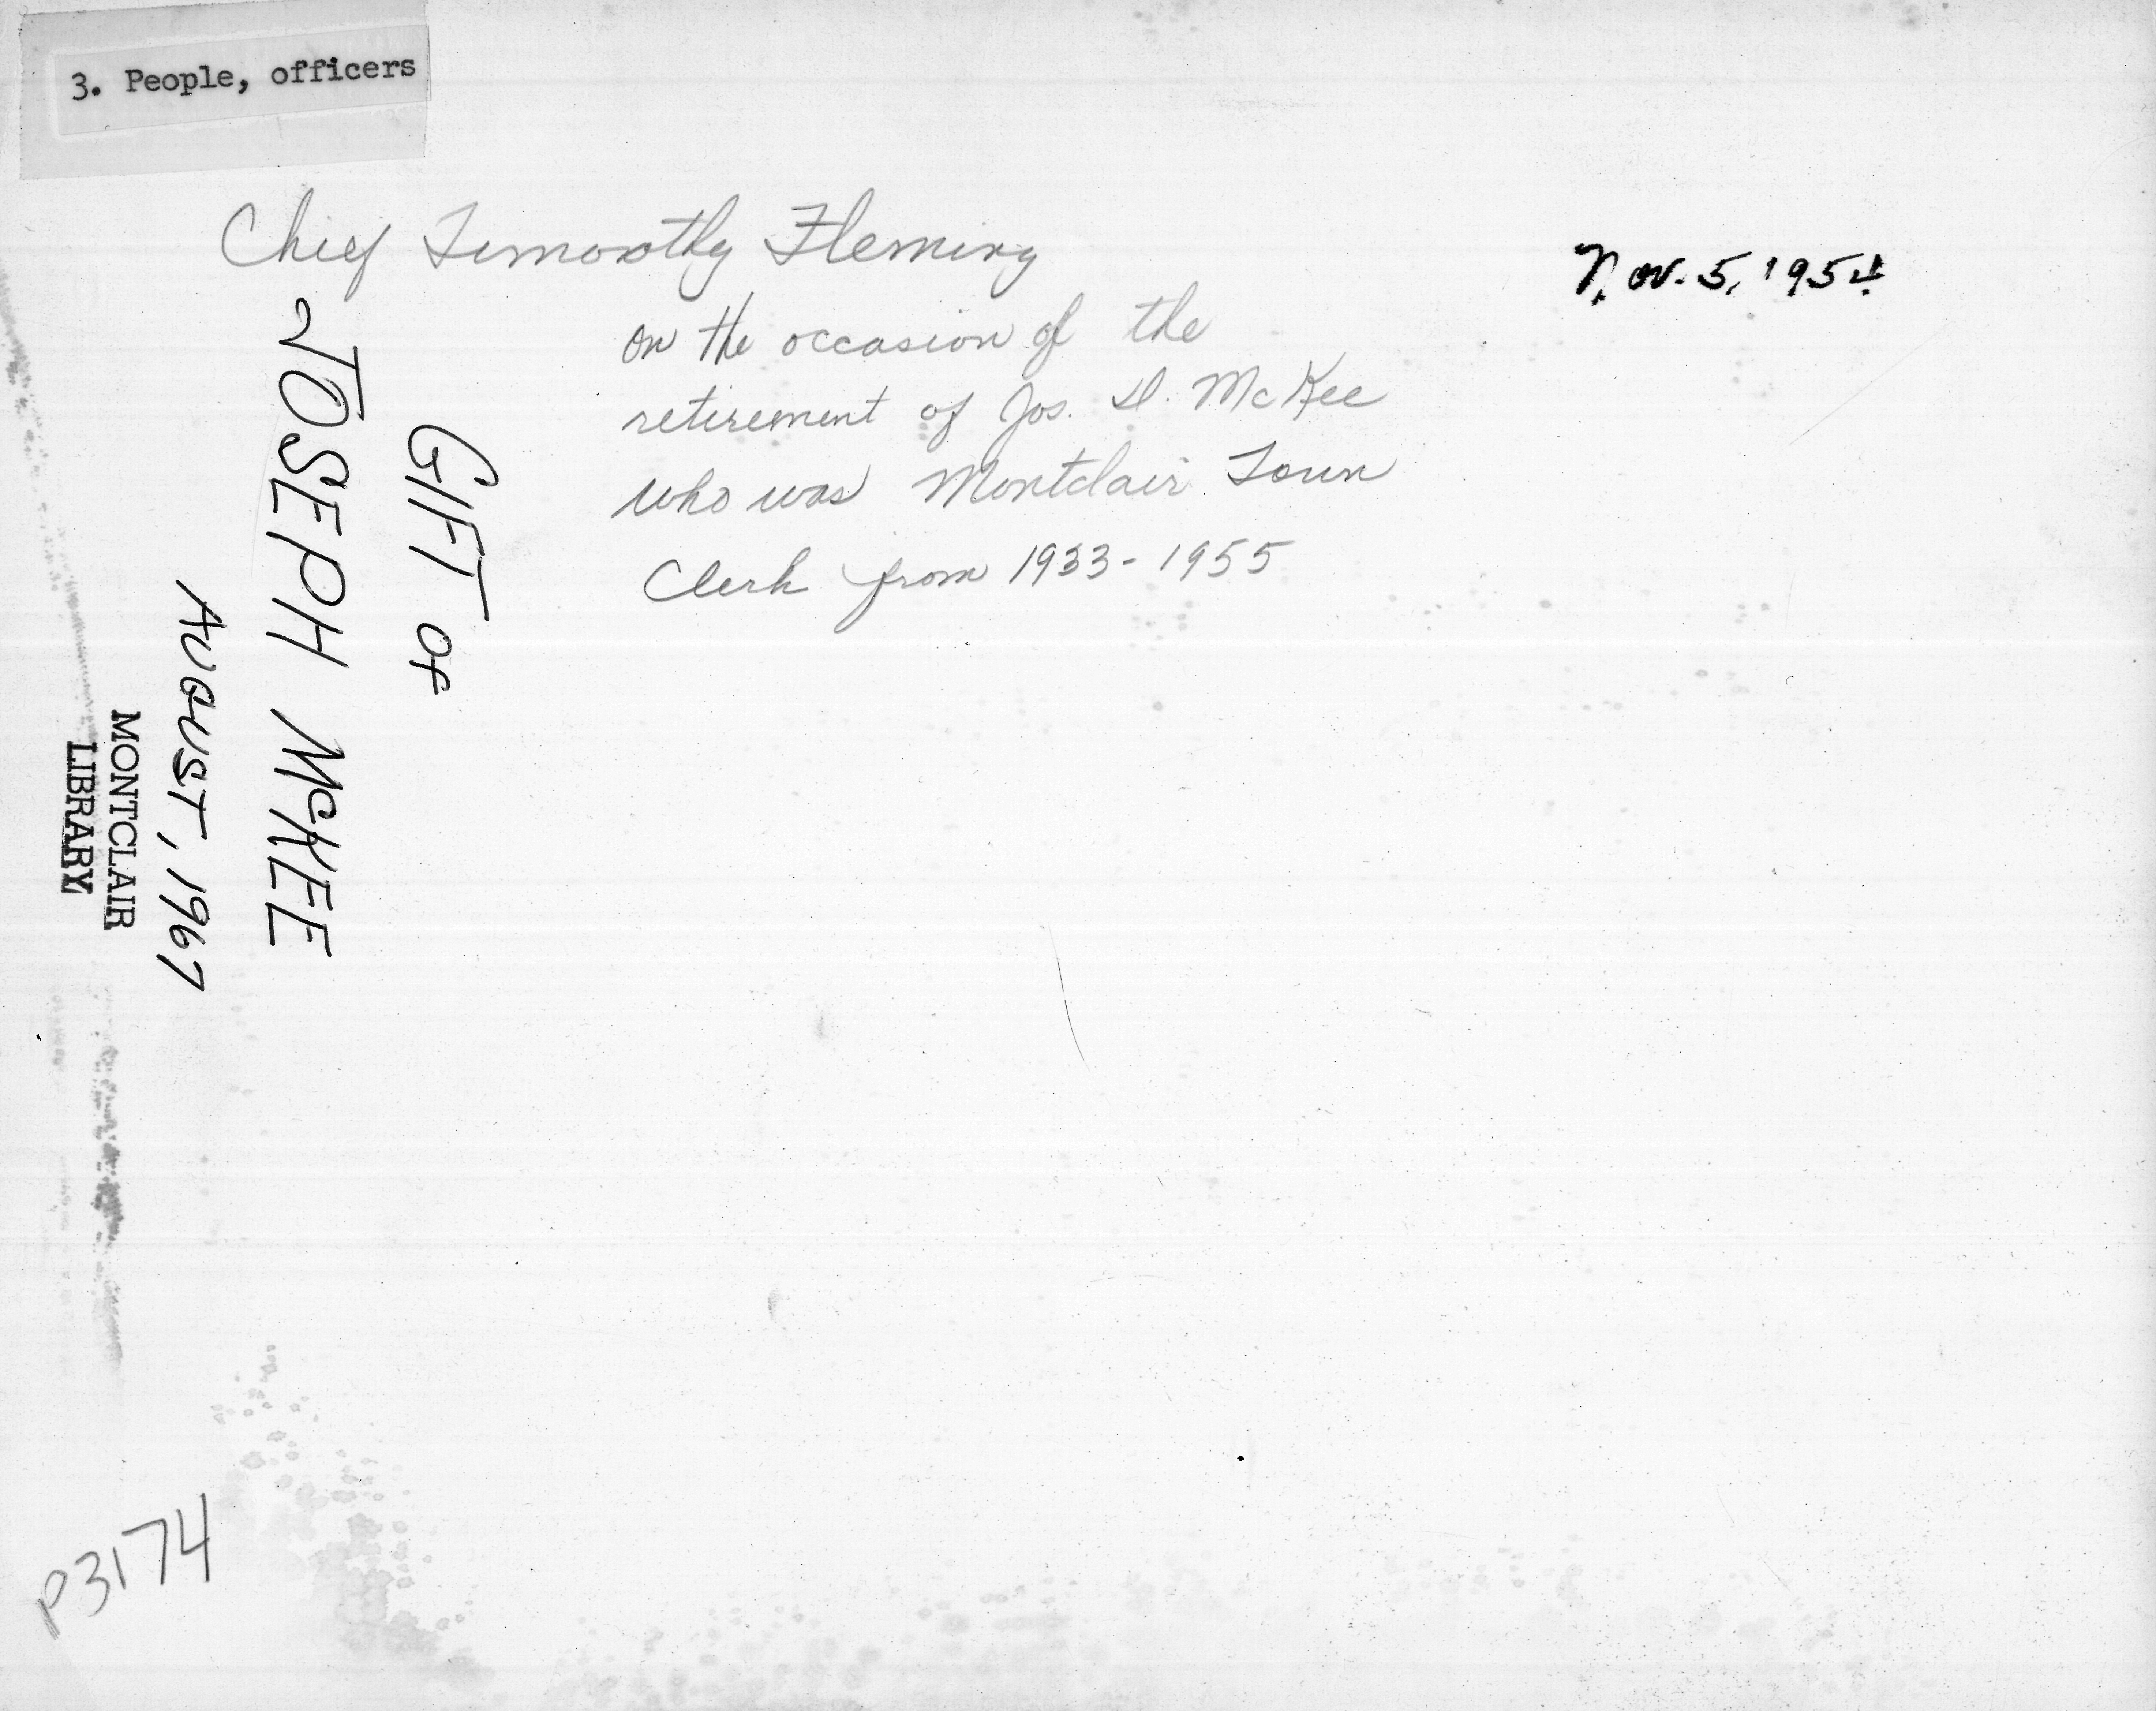 3. People, officers
Chief Timoothy Fleming
Nov. 5, 1954
on the occasion of the
retirement of Jos. D. McKee
who was Montclair Town
Clerk from 1933-1955
GIFT OF
JOSEPH McKEE
AUGUST, 1967
MONTCLAIR
LIBRARY
P3174